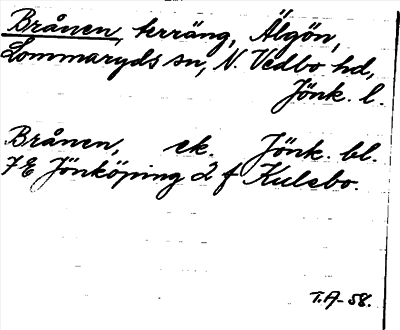 Brånen, terräng, Älgön,
Lommaryds sn, N. Vedbo hd,
Jönk. l.
Brånen, ek. Jönk. bl.
7E Jönköping 2 f Kulebo.
T.A-58.